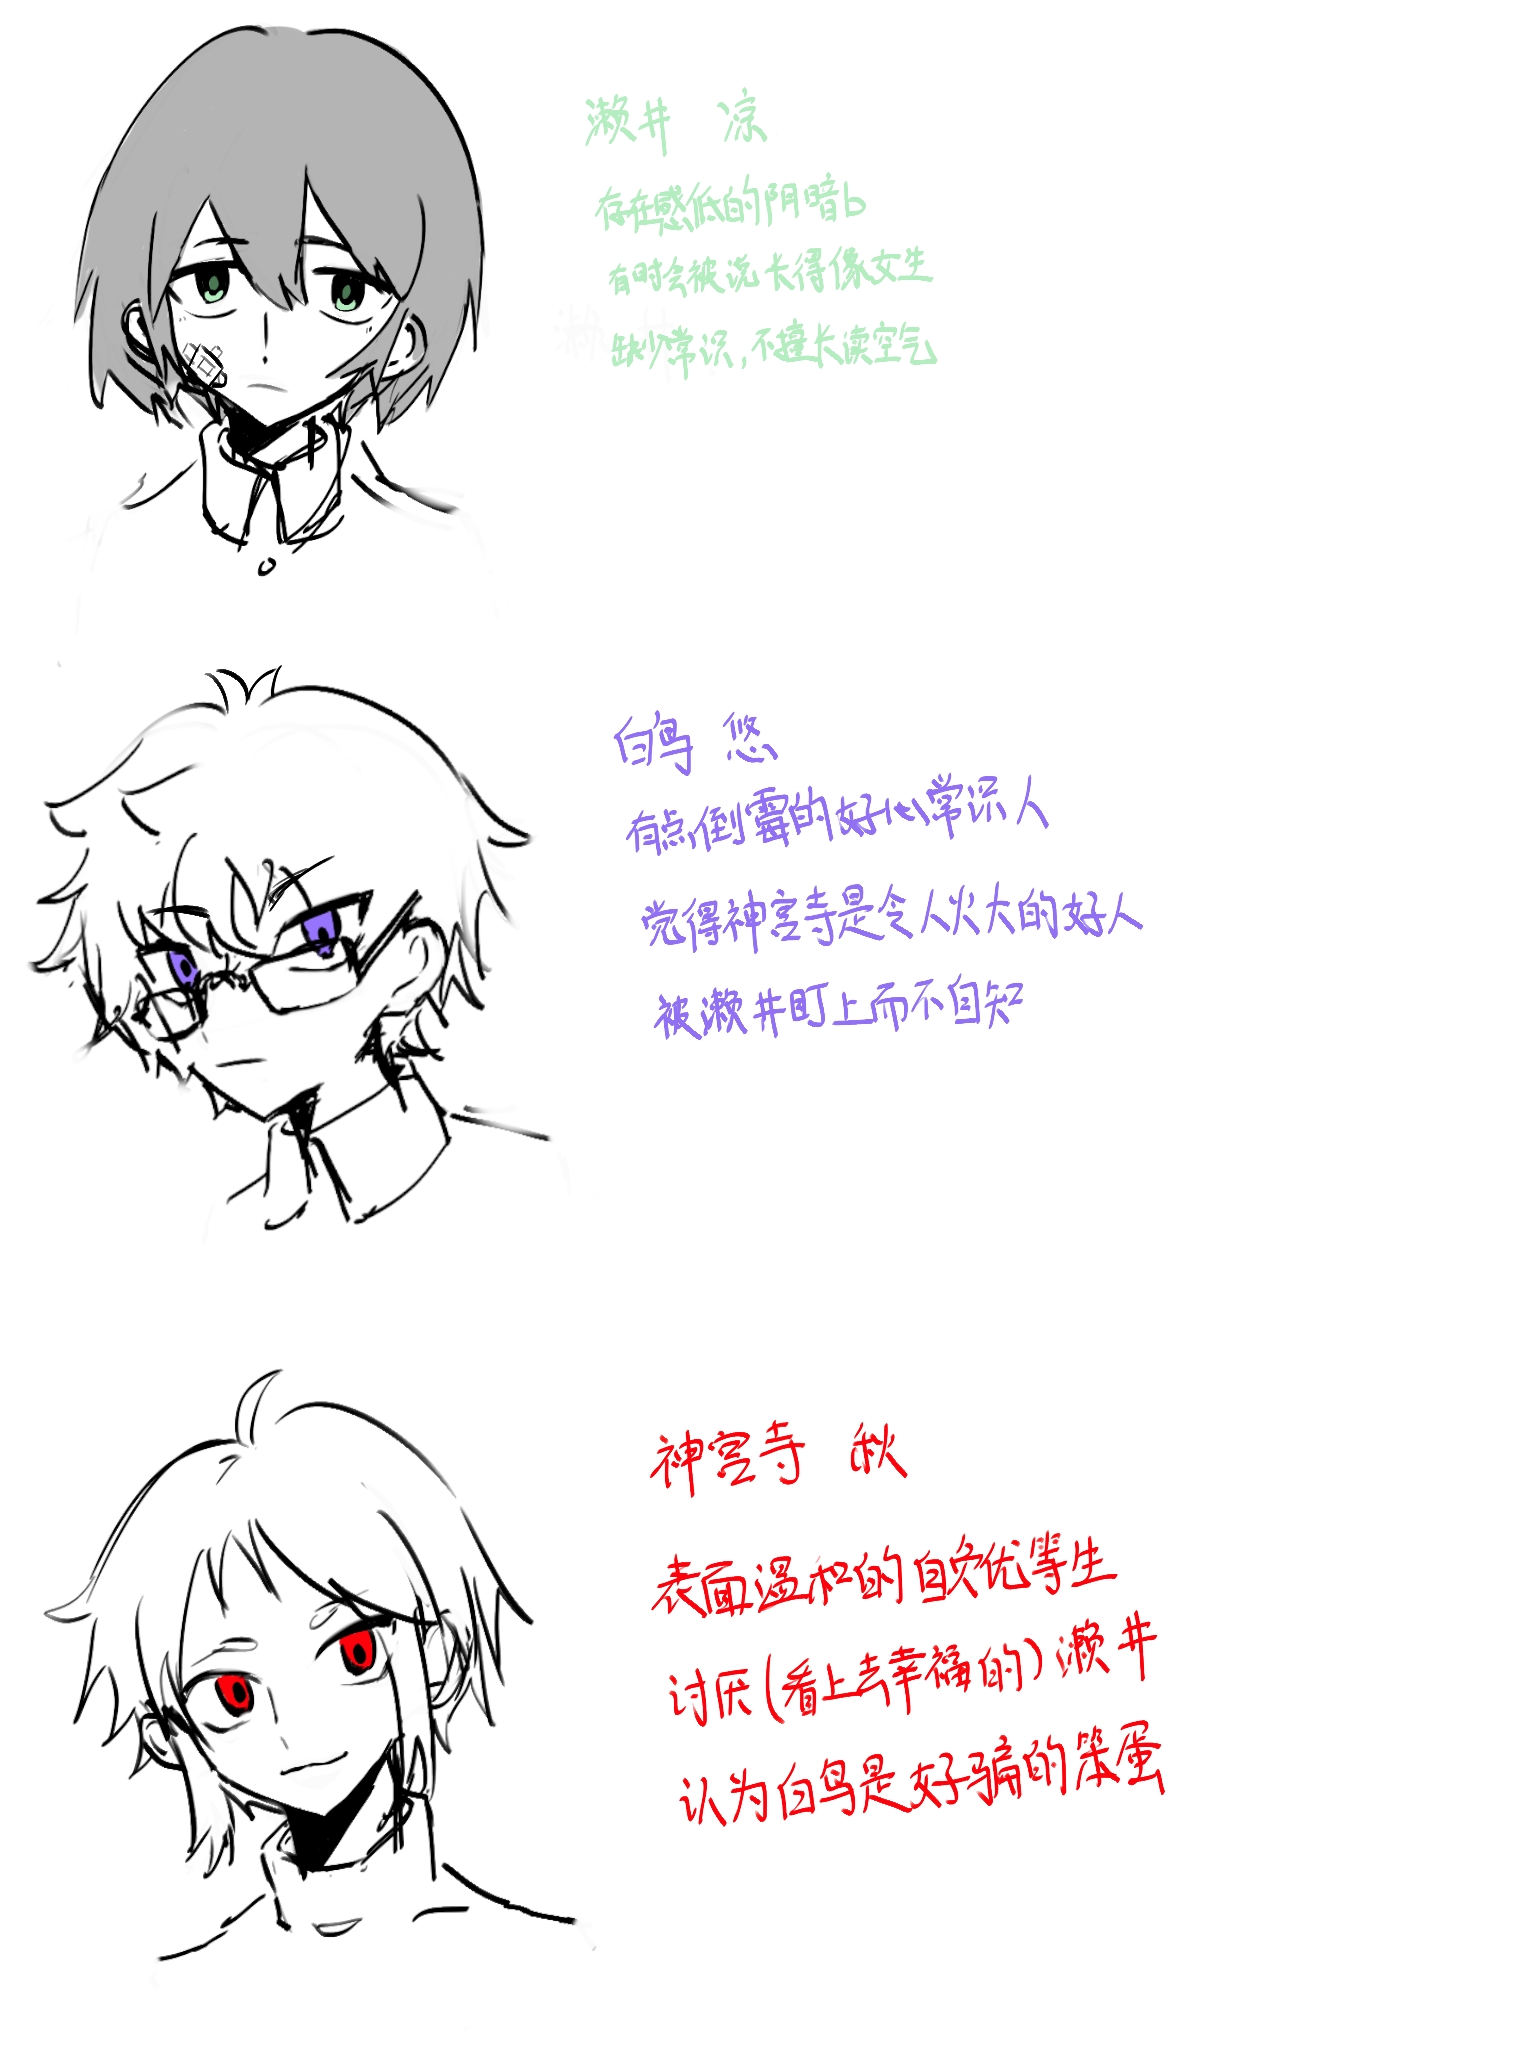 濑井 凉
存在感低的阴暗b
有时会被说长得像女生
缺少常识,不擅长读空气
白鸟 悠
有点倒霉的好心常识人
觉得神宫寺是令人火大的好人
被濑井盯上而不自知
神宫寺 秋
表面温和的自负优等生
讨厌(看上去幸福的)濑井
认为白鸟是好骗的笨蛋